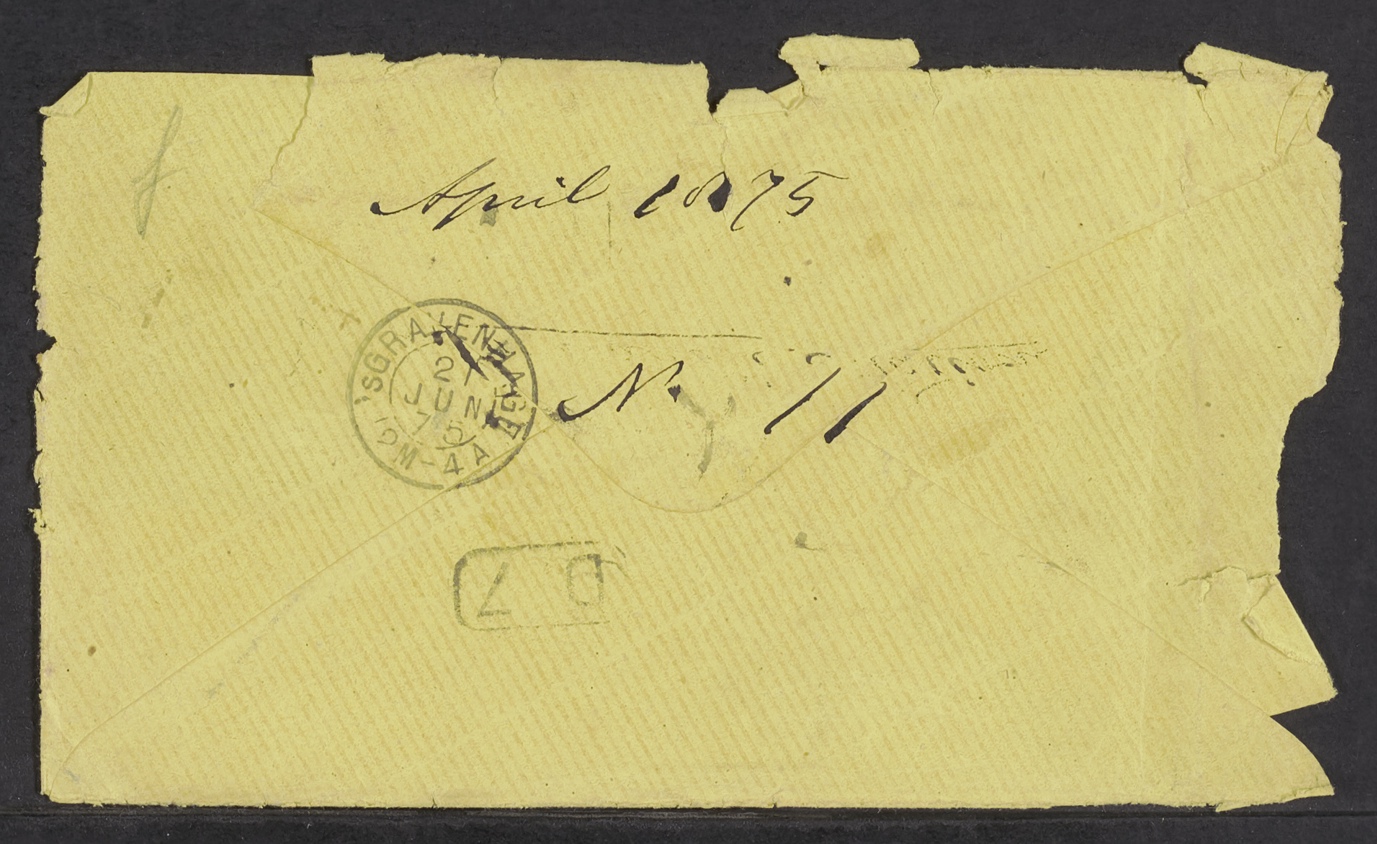 April 1875
'SGRAVENHAGE
21
JUN
75
12M-4A
No 11
D 7